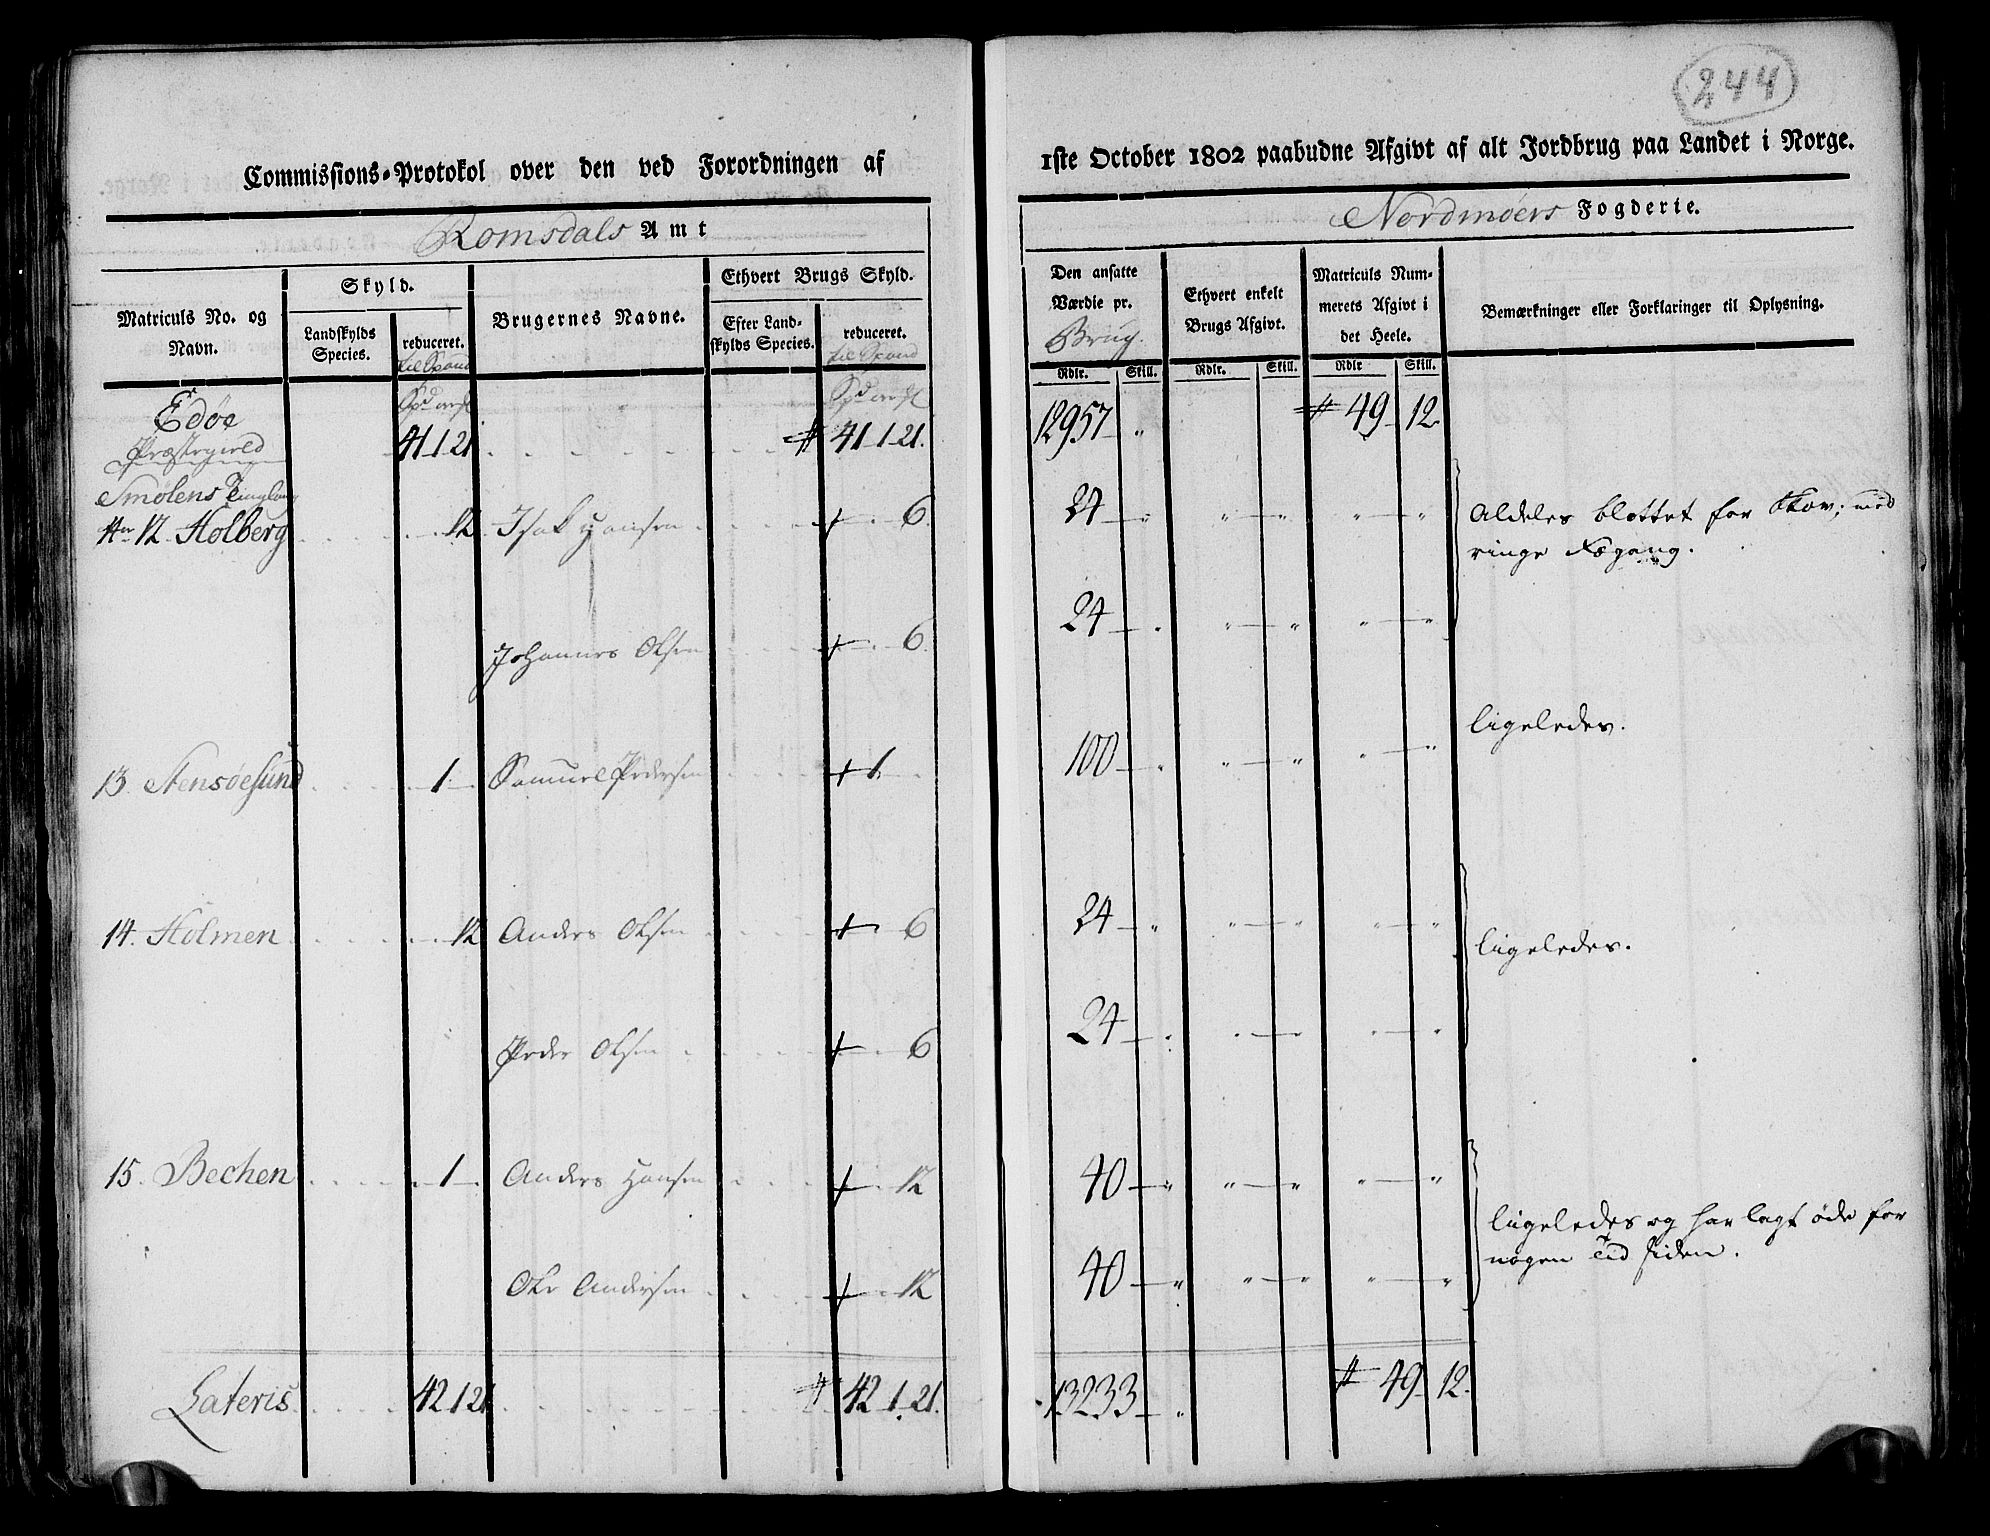 244
Commissions-Protokol over den ved Forordningen af
1ste October 1802 paabudne Afgivt af alt Jordbrug paa Landet i Norge.
Romsdals Amt
Nordmøers Fogderie.
Matriculs No. og Navn.
Skyld.
Landskylds Species.
reduceret. til Spand
Brugernes Navne.
Ethvert Brugs Skyld.
Efter Landskylds Species.
reduceret. til Spand
Den ansatte Værdie pr. Brug.
Rdlr. Skill.
Ethvert enkelt Brugs Afgivt.
Rdlr. Skill.
Matriculs Nummerets Afgivt i det Heele.
Rdlr Skill.
Bemærkninger eller Forklaringer til Oplysning.
Edøe
Præstegield 41 1 21 # 41 1 21. 12957 " # 49 12.
Smølens Tinglaug
No 12 Holberg 12 Isak Hansen + 6 24 " " " " " Aldeles blottet for Skov; med
ringe Fægang.
Johannes Olsen + 6 24 " " " " "
13. Stensøesund 1 Samuel Pedersen + 1. 100 " " " " " ligeledes.
14. Holmen 12 Anders Olsen + 6 24 " " " " " ligeledes.
Peder Olsen + 6 24 " " " " "
15. Bechen 1 Anders Hansen + 12 40 " " " " " ligeledes og har lagt øde for
nogen tid siden.
Ole Andersen + 12 40 " " " " "
Lateris 42 1 21 # 42 1. 21. 13233 " # 49 12.